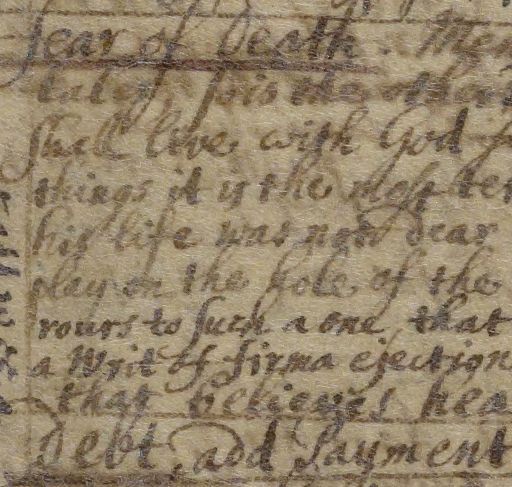 fear of Death. Men
shall live with God
things it is the most ter
his life was not dear
play on the hole of the
rours to such a one that
a Writ of firma ejection
that believes hea
Debt, add payment